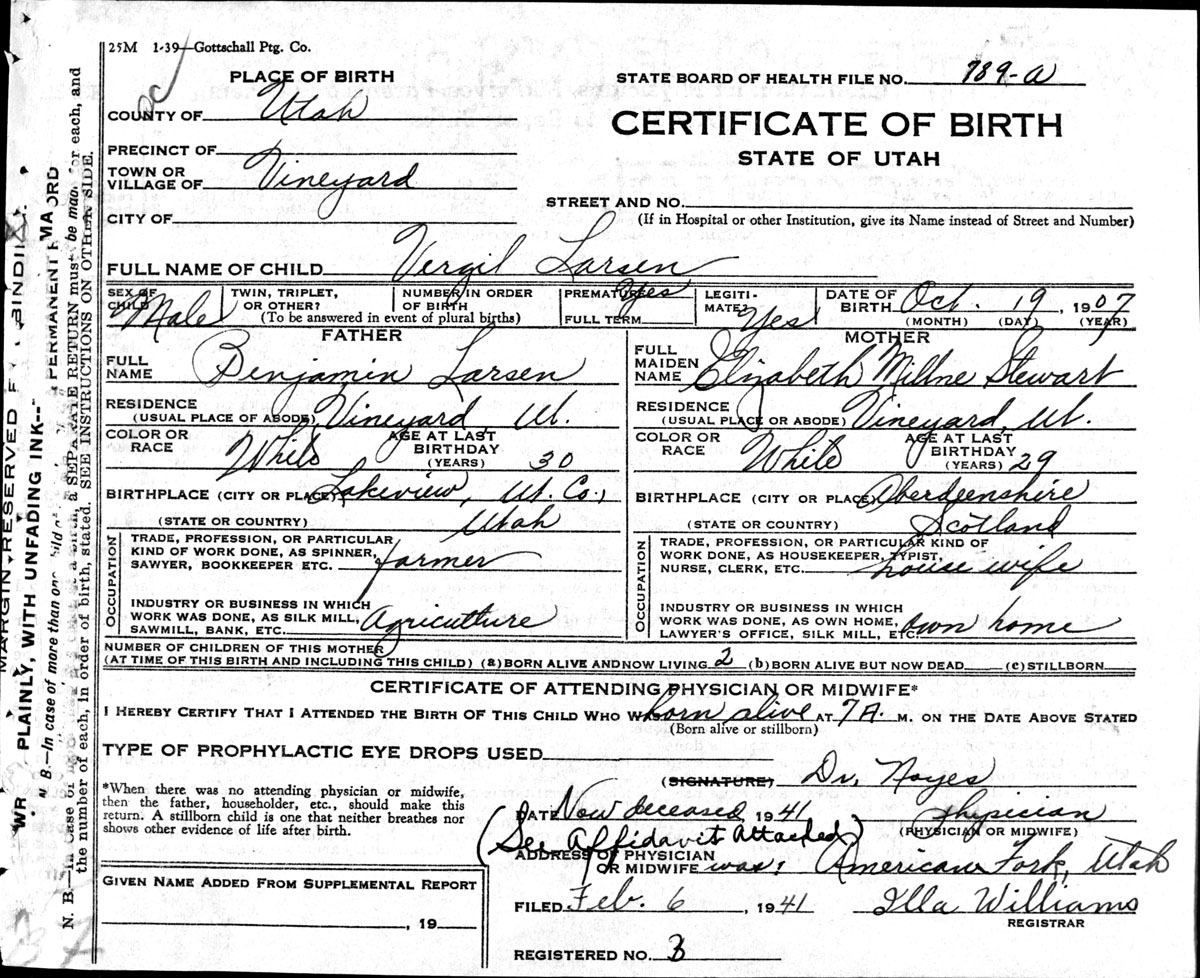 25M 1-39—Gottschall Ptg. Co.
PLACE OF BIRTH
STATE BOARD OF HEALTH FILE NO. 789-a
COUNTY OF Utah
CERTIFICATE OF BIRTH
PRECINCT OF
STATE OF UTAH
TOWN OR
VILLAGE OF Vineyard
STREET AND NO.
CITY OF
(If in Hospital or other Institution, give its Name instead of Street and Number)
FULL NAME OF CHILD Vergil Larsen
SEX OF CHILD Male
TWIN, TRIPLET, OR OTHER?
NUMBER IN ORDER OF BIRTH
(To be answered in event of plural births)
PREMATURE Yes
FULL TERM
LEGITI-MATE? Yes
DATE OF BIRTH Oct. 19, 1907
(MONTH) (DAY) (YEAR)
FATHER
FULL NAME Benjamin Larsen
RESIDENCE
(USUAL PLACE OF ABODE) Vineyard, Ut.
COLOR OR RACE White AGE AT LAST BIRTHDAY (YEARS) 30
BIRTHPLACE (CITY OR PLACE) Lakeview, Ut. Co.)
(STATE OR COUNTRY) Utah
OCCUPATION
TRADE, PROFESSION, OR PARTICULAR
KIND OF WORK DONE, AS SPINNER,
SAWYER, BOOKKEEPER ETC. farmer
INDUSTRY OR BUSINESS IN WHICH
WORK WAS DONE, AS SILK MILL,
SAWMILL, BANK, ETC. Agriculture
MOTHER
FULL MAIDEN NAME Elizabeth Millne Stewart
RESIDENCE
(USUAL PLACE OR ABODE) Vineyard, Ut.
COLOR OR RACE White AGE AT LAST BIRTHDAY (YEARS) 29
BIRTHPLACE (CITY OR PLACE) Aberdeenshire
(STATE OR COUNTRY) Scotland
OCCUPATION
TRADE, PROFESSION, OR PARTICULAR KIND OF
WORK DONE, AS HOUSEKEEPER, TYPIST,
NURSE, CLERK, ETC. house wife
INDUSTRY OR BUSINESS IN WHICH
WORK WAS DONE, AS OWN HOME,
LAWYER'S OFFICE, SILK MILL, ETC. own home
NUMBER OF CHILDREN OF THIS MOTHER
(AT TIME OF THIS BIRTH AND INCLUDING THIS CHILD) (a) BORN ALIVE AND NOW LIVING 2 (b) BORN ALIVE BUT NOW DEAD (c) STILLBORN
CERTIFICATE OF ATTENDING PHYSICIAN OR MIDWIFE*
I HEREBY CERTIFY THAT I ATTENDED THE BIRTH OF THIS CHILD WHO WAS born alive AT 7 A. M. ON THE DATE ABOVE STATED
(Born alive or stillborn)
TYPE OF PROPHYLACTIC EYE DROPS USED
*When there was no attending physician or midwife,
then the father, householder, etc., should make this
return. A stillborn child is one that neither breathes nor
shows other evidence of life after birth.
(SIGNATURE) Dr. Noyes
DATE Now deceased 1941 physician
(PHYSICIAN OR MIDWIFE)
(See Affidavit Attached)
ADDRESS OF PHYSICIAN
OR MIDWIFE was: American Fork, Utah
GIVEN NAME ADDED FROM SUPPLEMENTAL REPORT
, 19
FILED Feb. 6, 1941 Illa Williams
REGISTRAR
REGISTERED NO. 3
MARGIN RESERVED F BINDING
WR PLAINLY, WITH UNFADING INK---
PERMANENT
B.—In case of more than one
N. B.—In case of a birth, a SEPARATE RETURN must be made for each, and
the number of each, in order of birth, stated. SEE INSTRUCTIONS ON OTHER SIDE.